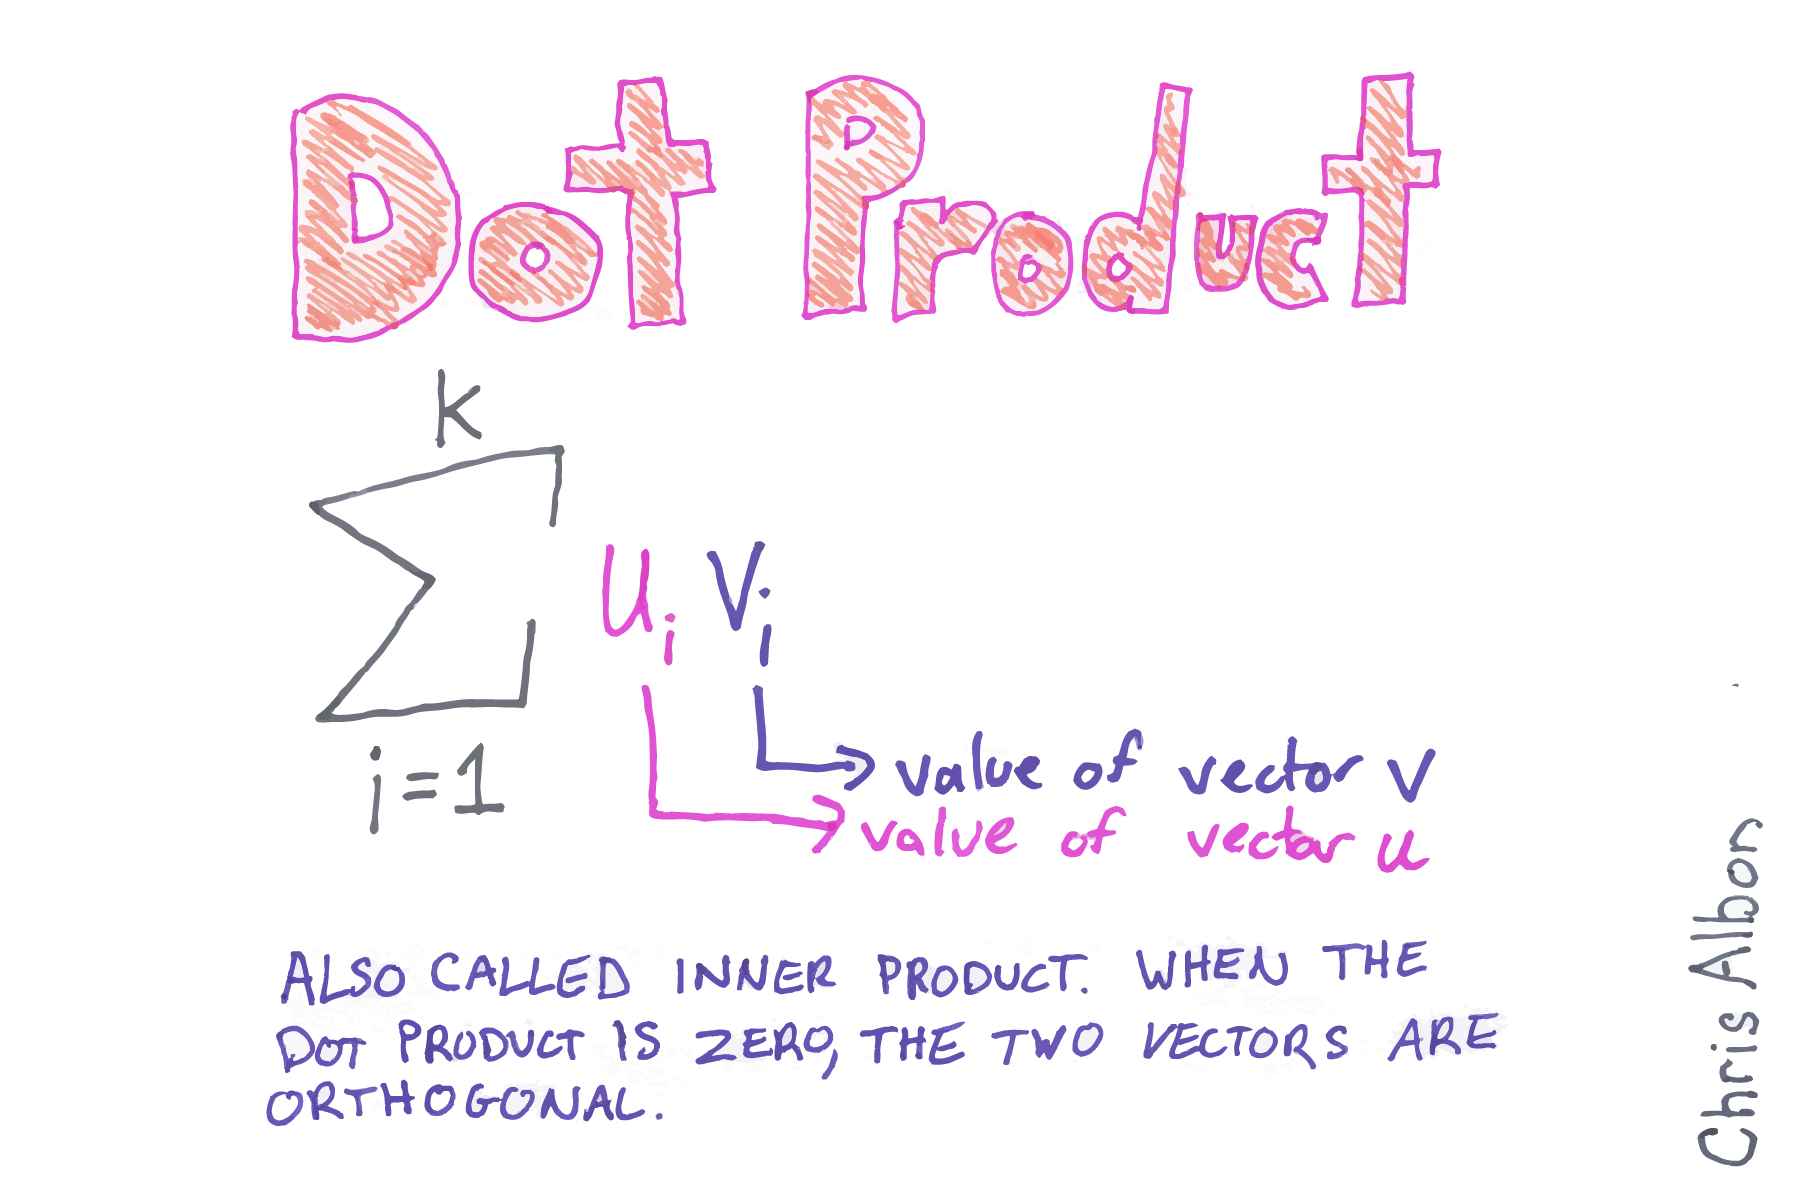 Dot Product
k
Σ
i=1
uᵢ vᵢ
value of vector v
value of vector u
ALSO CALLED INNER PRODUCT. WHEN THE
DOT PRODUCT IS ZERO, THE TWO VECTORS ARE
ORTHOGONAL.
Chris Albon